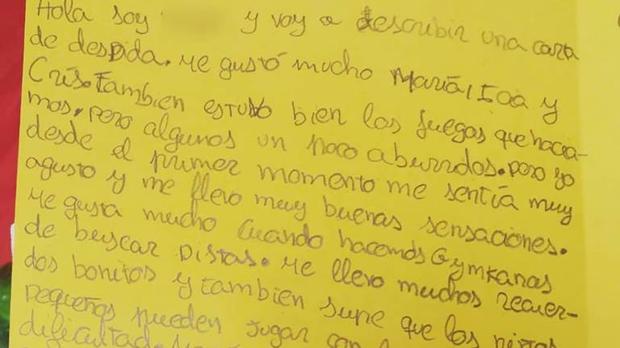 Hola soy y voy a describir una carta
de despida. Me gustó mucho María, Isa y
Cris. Tambien estubo bien los juegos que hacia-
mos. pero algunos un poco aburridos. pero yo
desde el primer momento me sentía muy
agusto y me llevo muy buenas sensaciones.
Me gusta mucho cuando hacemos Gymkanas
de buscar pistas. Me llevo muchos recuer-
dos bonitos y tambien supe que los niños
pequeños pueden jugar con